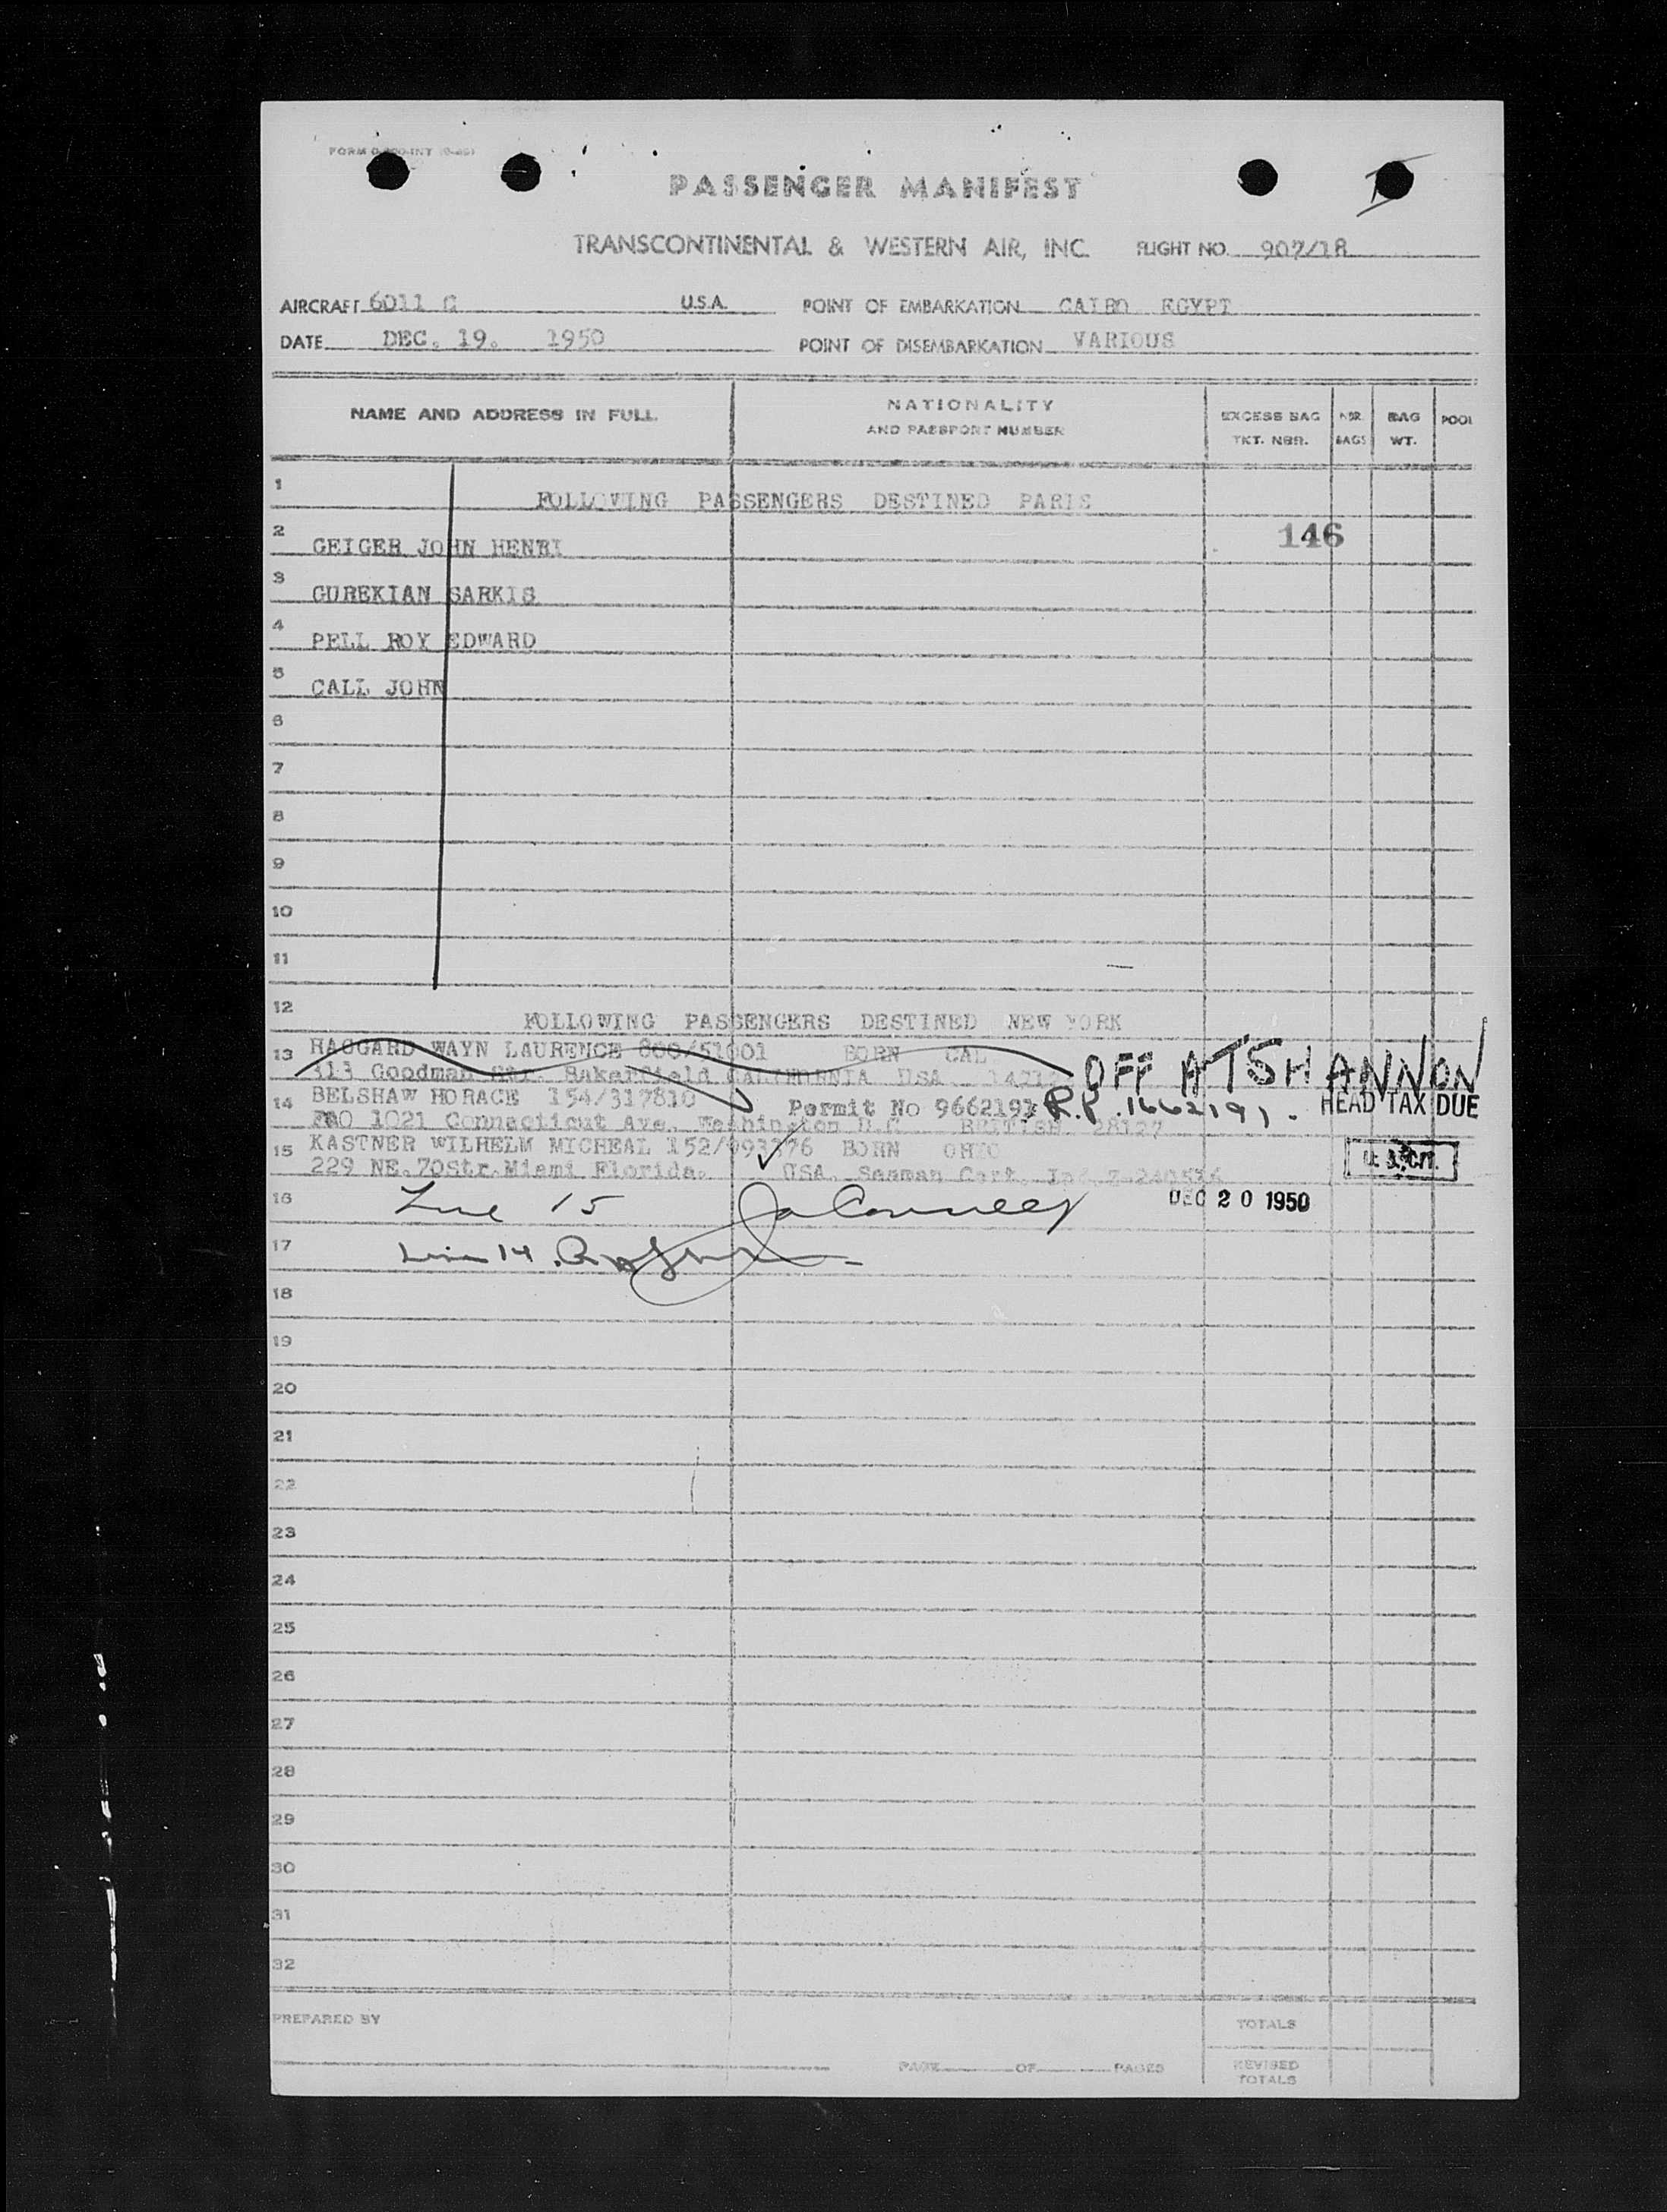 PASSENGER MANIFEST
TRANSCONTINENTAL & WESTERN AIR, INC. FLIGHT NO. 907/18
AIRCRAFT 6011 C U.S.A. POINT OF EMBARKATION CAIRO EGYPT
DATE DEC. 19. 1950 POINT OF DISEMBARKATION VARIOUS
NAME AND ADDRESS IN FULL NATIONALITY AND PASSPORT NUMBER EXCESS BAG TKT. NBR. NBR. BAGS BAG WT. POOL
1 FOLLOWING PASSENGERS DESTINED PARIS
2 GEIGER JOHN HENRI 146
3 GUREKIAN SARKIS
4 PELL ROY EDWARD
5 CALL JOHN
6
7
8
9
10
11
12 FOLLOWING PASSENGERS DESTINED NEW YORK
13 HAGGARD WAYN LAURENCE 800/51001 BORN CAL
313 Goodman Str. Bakerfield CALIFORNIA USA OFF AT SHANNON
14 BELSHAW HORACE 154/317810 Permit No 9662191 R.P. 1662191. HEAD TAX DUE
FAO 1021 Connecticut Ave. Washington D.C. BRITISH 28127
15 KASTNER WILHELM MICHEAL 152/993376 BORN OHIO
229 NE. 70Str. Miami Florida. USA. Seaman Cert. U.S. CIT.
16 Line 15 DEC 20 1950
17 Line 14
18
19
20
21
22
23
24
25
26
27
28
29
30
31
32
PREPARED BY TOTALS
PAGE OF PAGES REVISED TOTALS